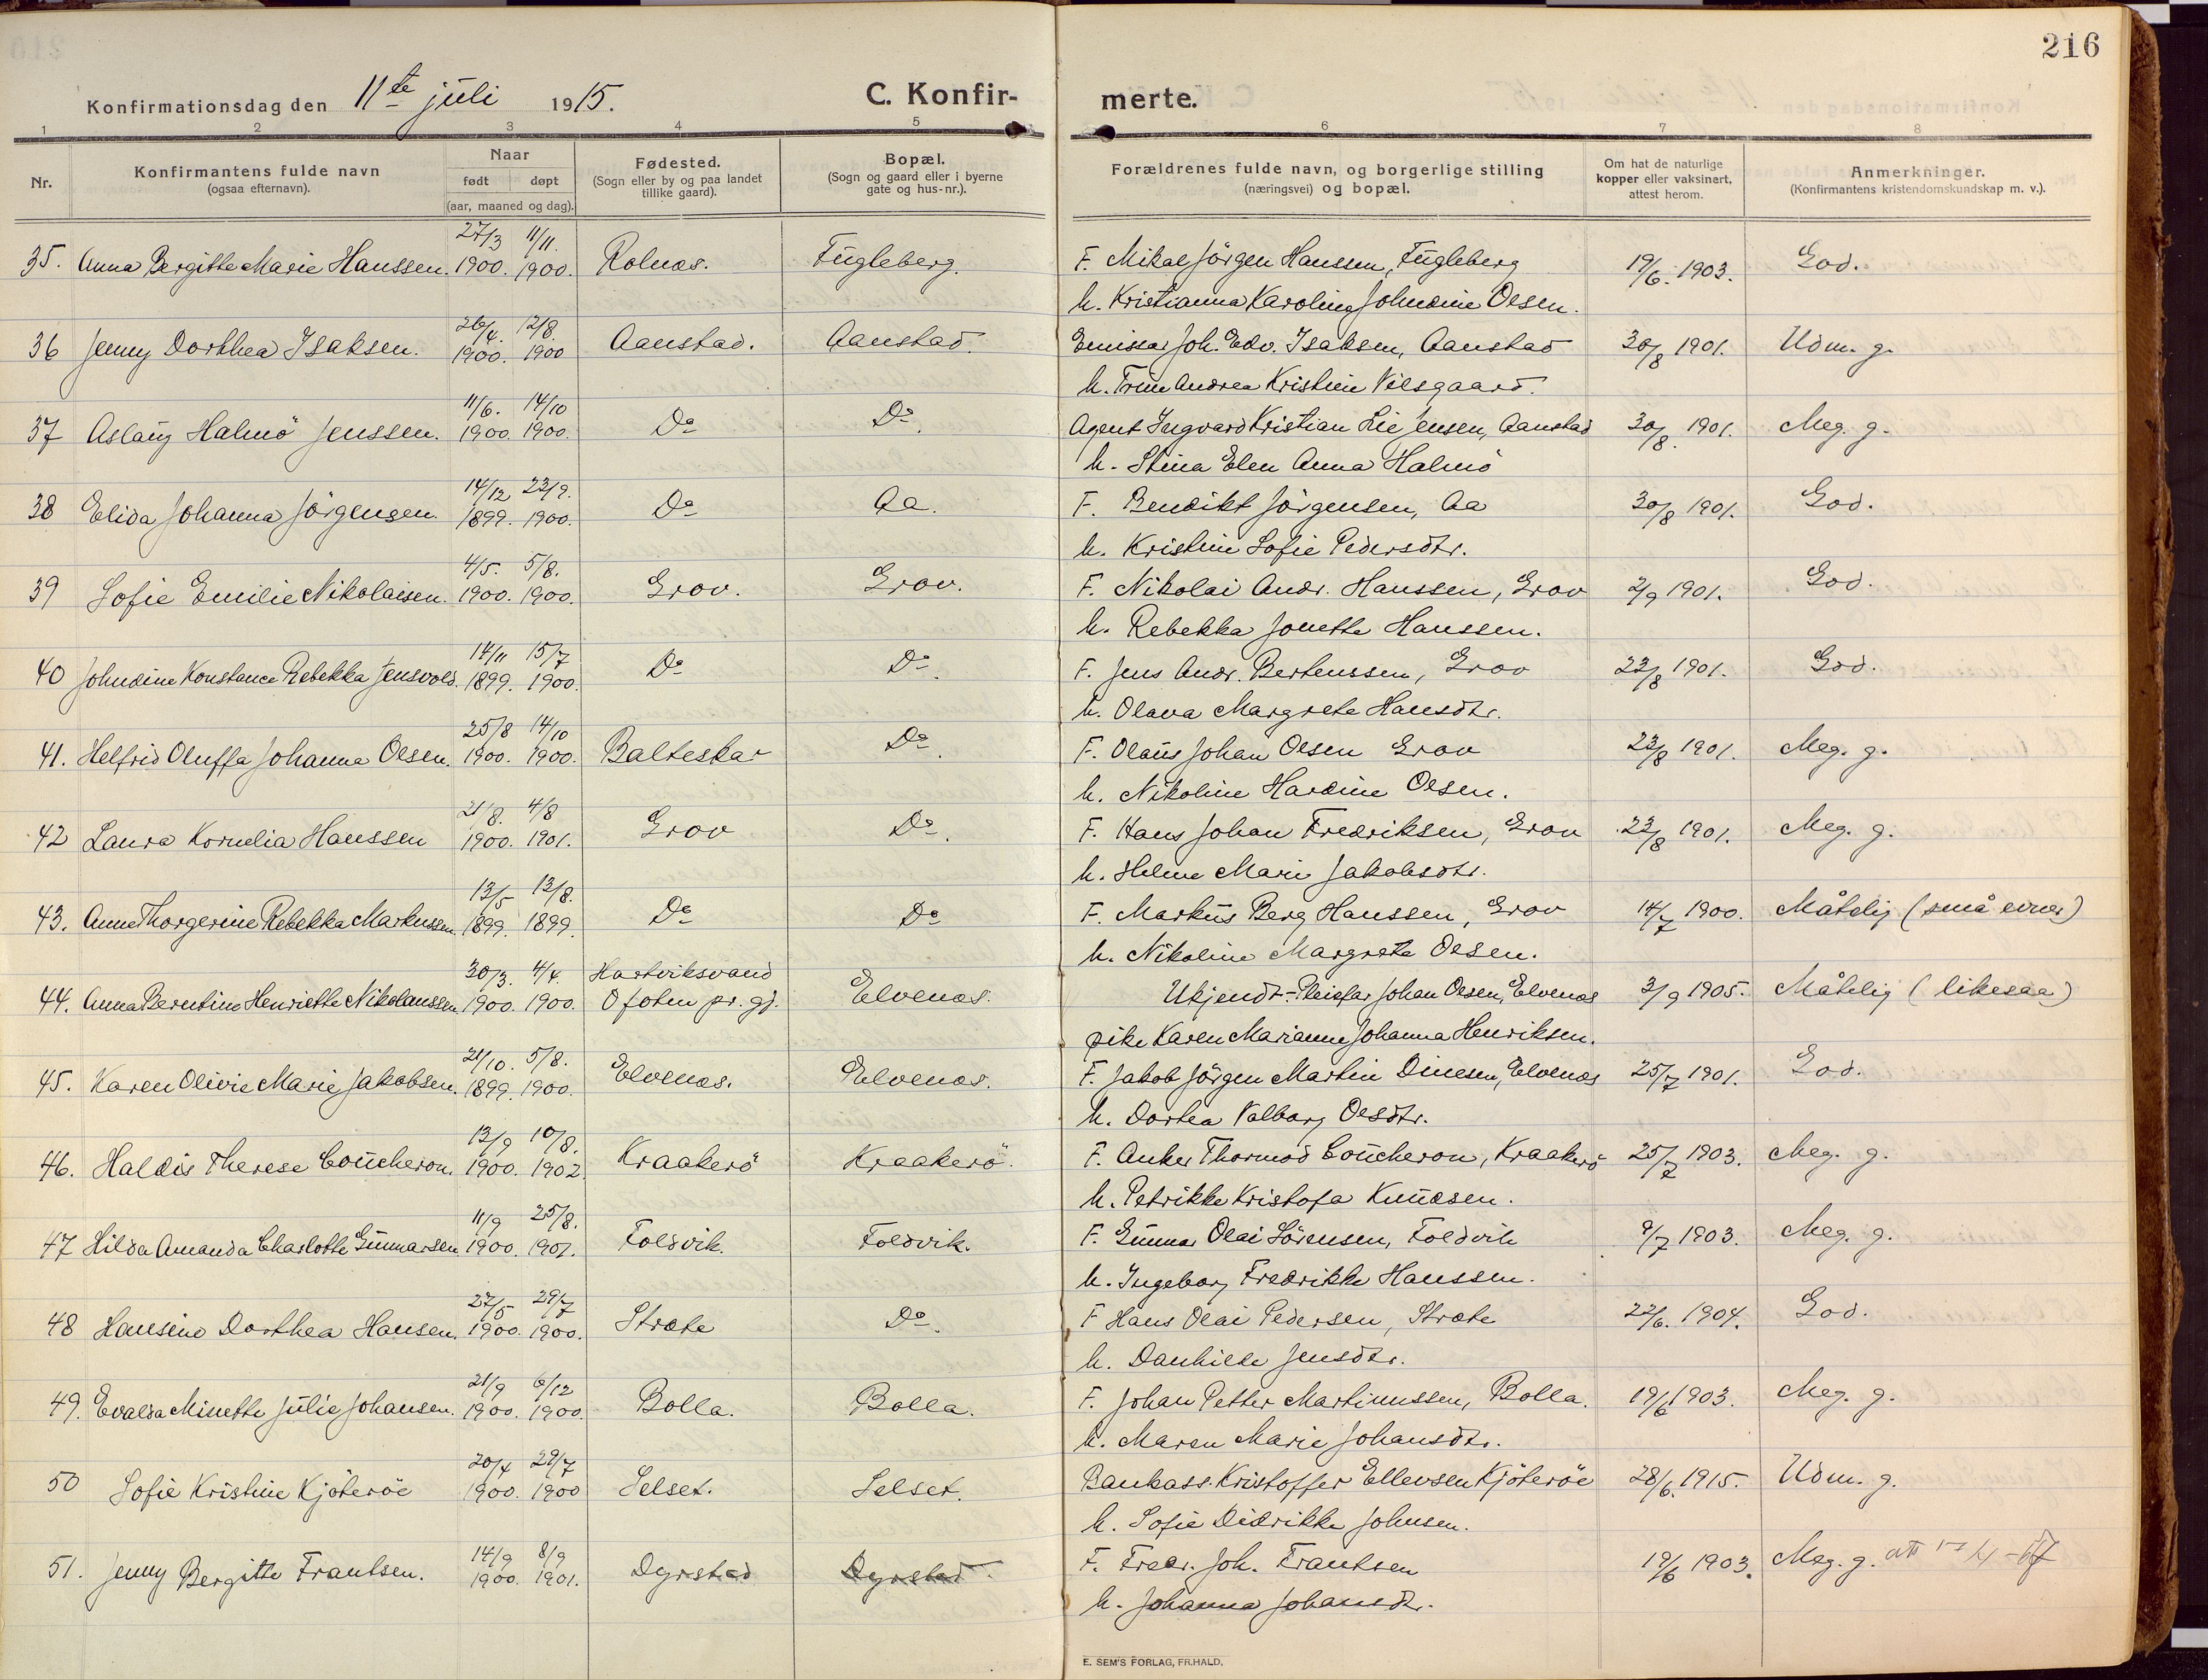 216
Konfirmationsdag den 11te juli 1915. C. Konfirmerte.
1 2 3 4 5 6 7 8
Nr. Konfirmantens fulde navn (ogsaa efternavn). Naar født døpt (aar, maaned og dag). Fødested. (Sogn eller by og paa landet tillike gaard). Bopæl. (Sogn og gaard eller i byerne gate og hus-nr.). Forældrenes fulde navn, og borgerlige stilling (næringsvei) og bopæl. Om hat de naturlige kopper eller vaksinert, attest herom. Anmerkninger. (Konfirmantens kristendomskundskap m. v.).
35. Anna Bergitte Marie Hanssen. 27/3 1900. 11/11. 1900. Rolnæs. Fugleberg. F. Mikal Jörgen Hanssen, Fugleberg 19/6. 1903. God.
h. Kristianna Karoline Johndine Olsen.
36 Jenny Dorthea Isaksen. 26/4. 1900. 12/8. 1900 Aanstad. Aanstad. Emissær Joh. Edv. Isaksen, Aanstad 30/8 1901. Udm. g.
h. Trine Andrea Kristine Vilsgaard.
37 Aslaug Halmö Jenssen. 11/6. 1900. 14/10 1900. Do Do. Agent Ingvard Kristian Lie Jensen, Aanstad 30/8. 1901. Meg. g.
h. Stina Elen Anna Halmö
38 Elida Johanna Jörgensen. 14/12 1899. 23/9. 1900. Do Aa. F. Bendikt Jörgensen, Aa 30/8 1901. God.
h. Kristine Sofie Pedersdtr.
39 Sofie Emilie Nikolaisen. 4/5. 1900. 5/8. 1900. Grov. Grov. F. Nikolai Andr. Hanssen, Grov 2/9 1901. God.
h. Rebekka Jonette Hanssen.
40 Johndine Konstance Rebekka Jensvold. 14/11 1899. 15/7 1900. Do Do. F. Jens Andr. Bertenssen, Grov 23/8 1901. God.
h. Olava Margrete Hansdtr.
41. Helfrid Oluffa Johanna Olsen. 25/8 1900. 14/10 1900. Balteskar Do. F. Olaus Johan Olsen Grov 23/8 1901. Meg. g.
h. Nikoline Hardine Olsen.
42 Laura Kornelia Hanssen 21/8. 1900. 4/8 1901. Grov Do. F. Hans Johan Fredriksen, Grov 23/8 1901. Meg. g.
h. Helene Marie Jakobsdtr.
43. Anne Thorgerine Rebekka Markussen. 13/5 1899. 13/8. 1899. Do Do F. Markus Berg Hanssen, Grov 14/7 1900. Måtelig (små evner)
h. Nikoline Margrete Olsen.
44. Anna Berntine Henriette Nikolaussen. 30/3. 1900. 4/4. 1900. Hartviksvand Ofoten pr. gj. Elvenæs. Ukjendt - Pleiefar Johan Olsen, Elvenæs 3/9 1905. Måtelig (likesaa)
pike Karen Marianne Johanna Henriksen.
45. Karen Olivie Marie Jakobsen. 21/10. 1899. 5/8. 1900. Elvenæs. Elvenæs. F. Jakob Jörgen Martin Dinesen, Elvenæs 25/7 1901. God.
h. Dortea Valborg Olsdtr.
46. Haldis Therese Coucheron. 13/9 1900. 10/8. 1902. Kraakerö Kraakerö. F. Anker Thormod Coucheron, Kraakerö 25/7 1903. Meg. g.
h. Petrikke Kristofa Knudsen.
47 Hilda Amanda Charlotte Gunnarsen 11/9 1900. 25/8. 1901. Foldvik. Foldvik. F. Gunnar Olai Sörensen, Foldvik 9/7 1903. Meg. g.
h. Ingeborg Fredrikke Hanssen.
48 Hansine Dorthea Hansen. 27/5 1900. 29/7 1900. Stræte Do. F Hans Olai Pedersen, Stræte 22/6. 1904. God.
h. Danhilde Jensdtr.
49. Evalda Minette Julie Johansen. 21/9 1900. 6/12 1900. Bolla. Bolla. F. Johan Petter Martinussen, Bolla. 19/6 1903. Meg. g.
h. Maren Marie Johansdtr.
50 Sofie Kristine Kjöteröe 20/4 1900. 29/7 1900 Selset. Selset. Bankass. Kristoffer Ellevsen Kjöteröe 28/6. 1915. Udm. g.
h. Sofie Didrikke Johnsen.
51. Jenny Bergitte Frantsen. 14/9 1900. 8/9 1901. Dyrstad Dyrstad. F. Fredr. Joh. Frantsen 19/6 1903. Meg. g.
h. Johanna Johansdtr.
E. SEM'S FORLAG, FR.HALD.